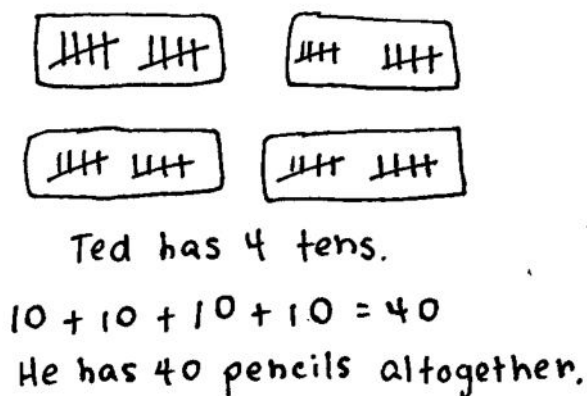 Ted has 4 tens.
10 + 10 + 10 + 10 = 40
He has 40 pencils altogether.